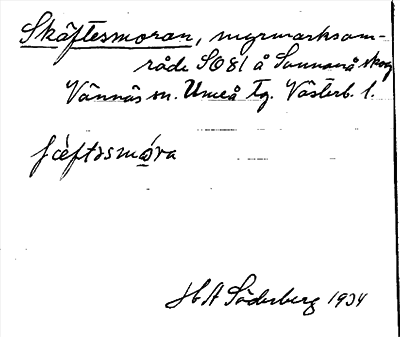 Skäftesmoran, myrmarksom-
råde SO 81 å Sunnanå skog
Vännäs sn. Umeå tg. Västerb. l.
ʃæ̀ftəsmo̲ra
H A Söderberg 1934